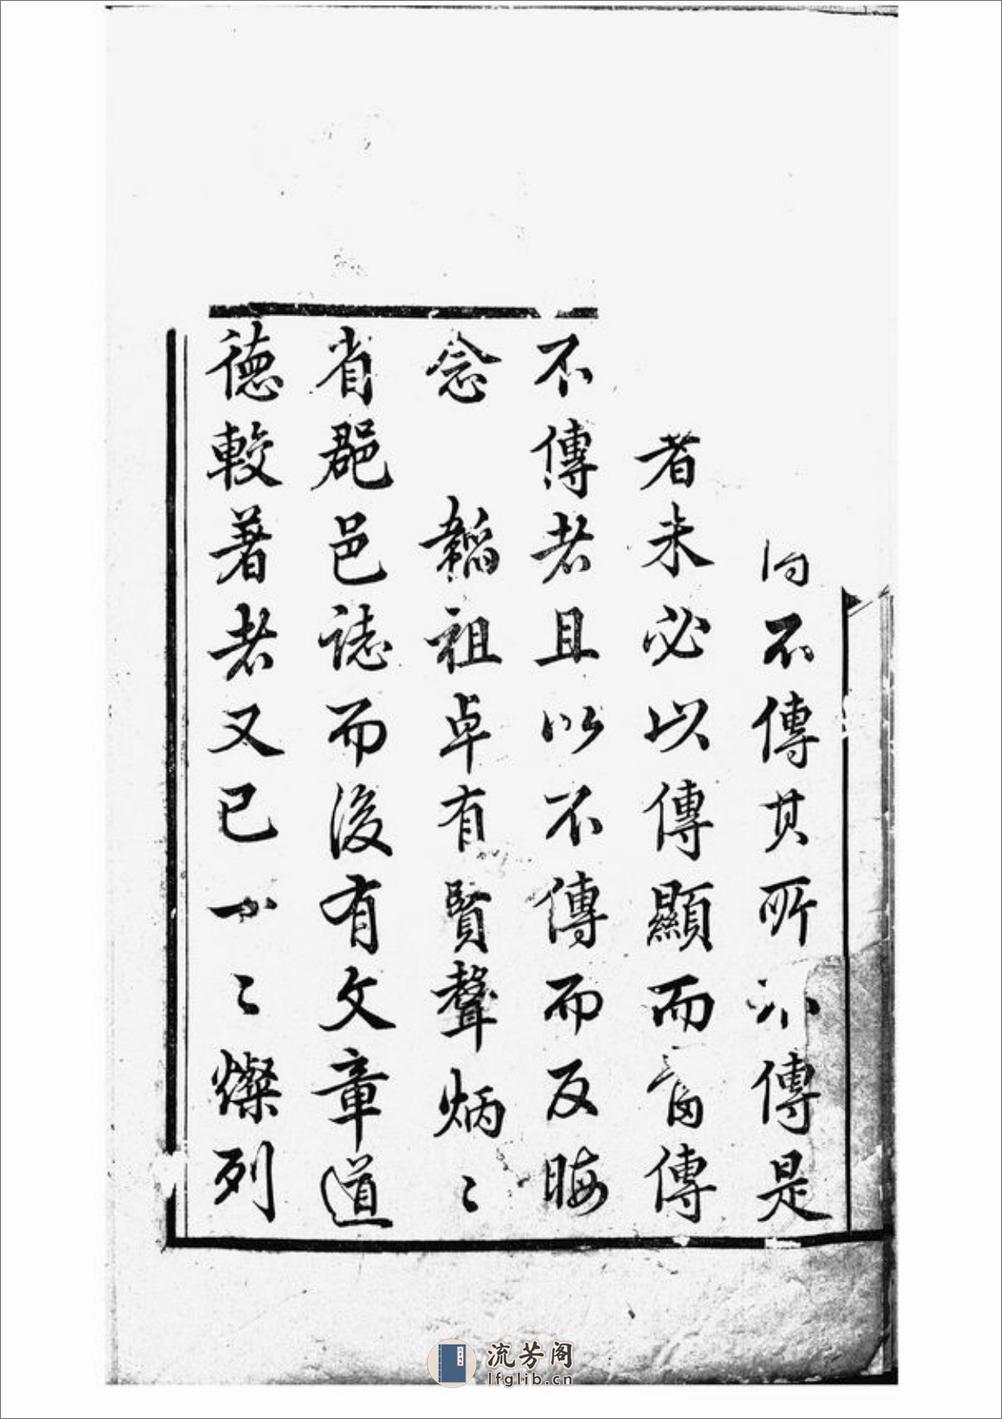 不傳其所 傳是
者未必以傳顯而 傳
不傳者且以不傳而反晦
念 韜祖卓有賢聲炳〻
省郡邑誌而後有文章道
德較著者又已一〻燦列
流芳阁
lfglib.cn